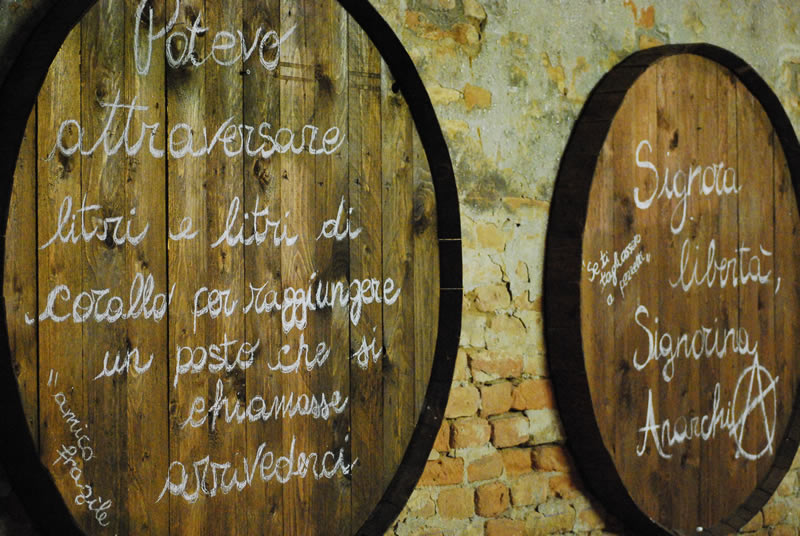 Potevo
attraversare
litri e litri di
corallo per raggiungere
un posto che si
chiamasse
arrivederci
"amico
fragile
Signora
libertà,
Signorina
AnarchiA
"Se ti
tagliassero
a pezzetti"